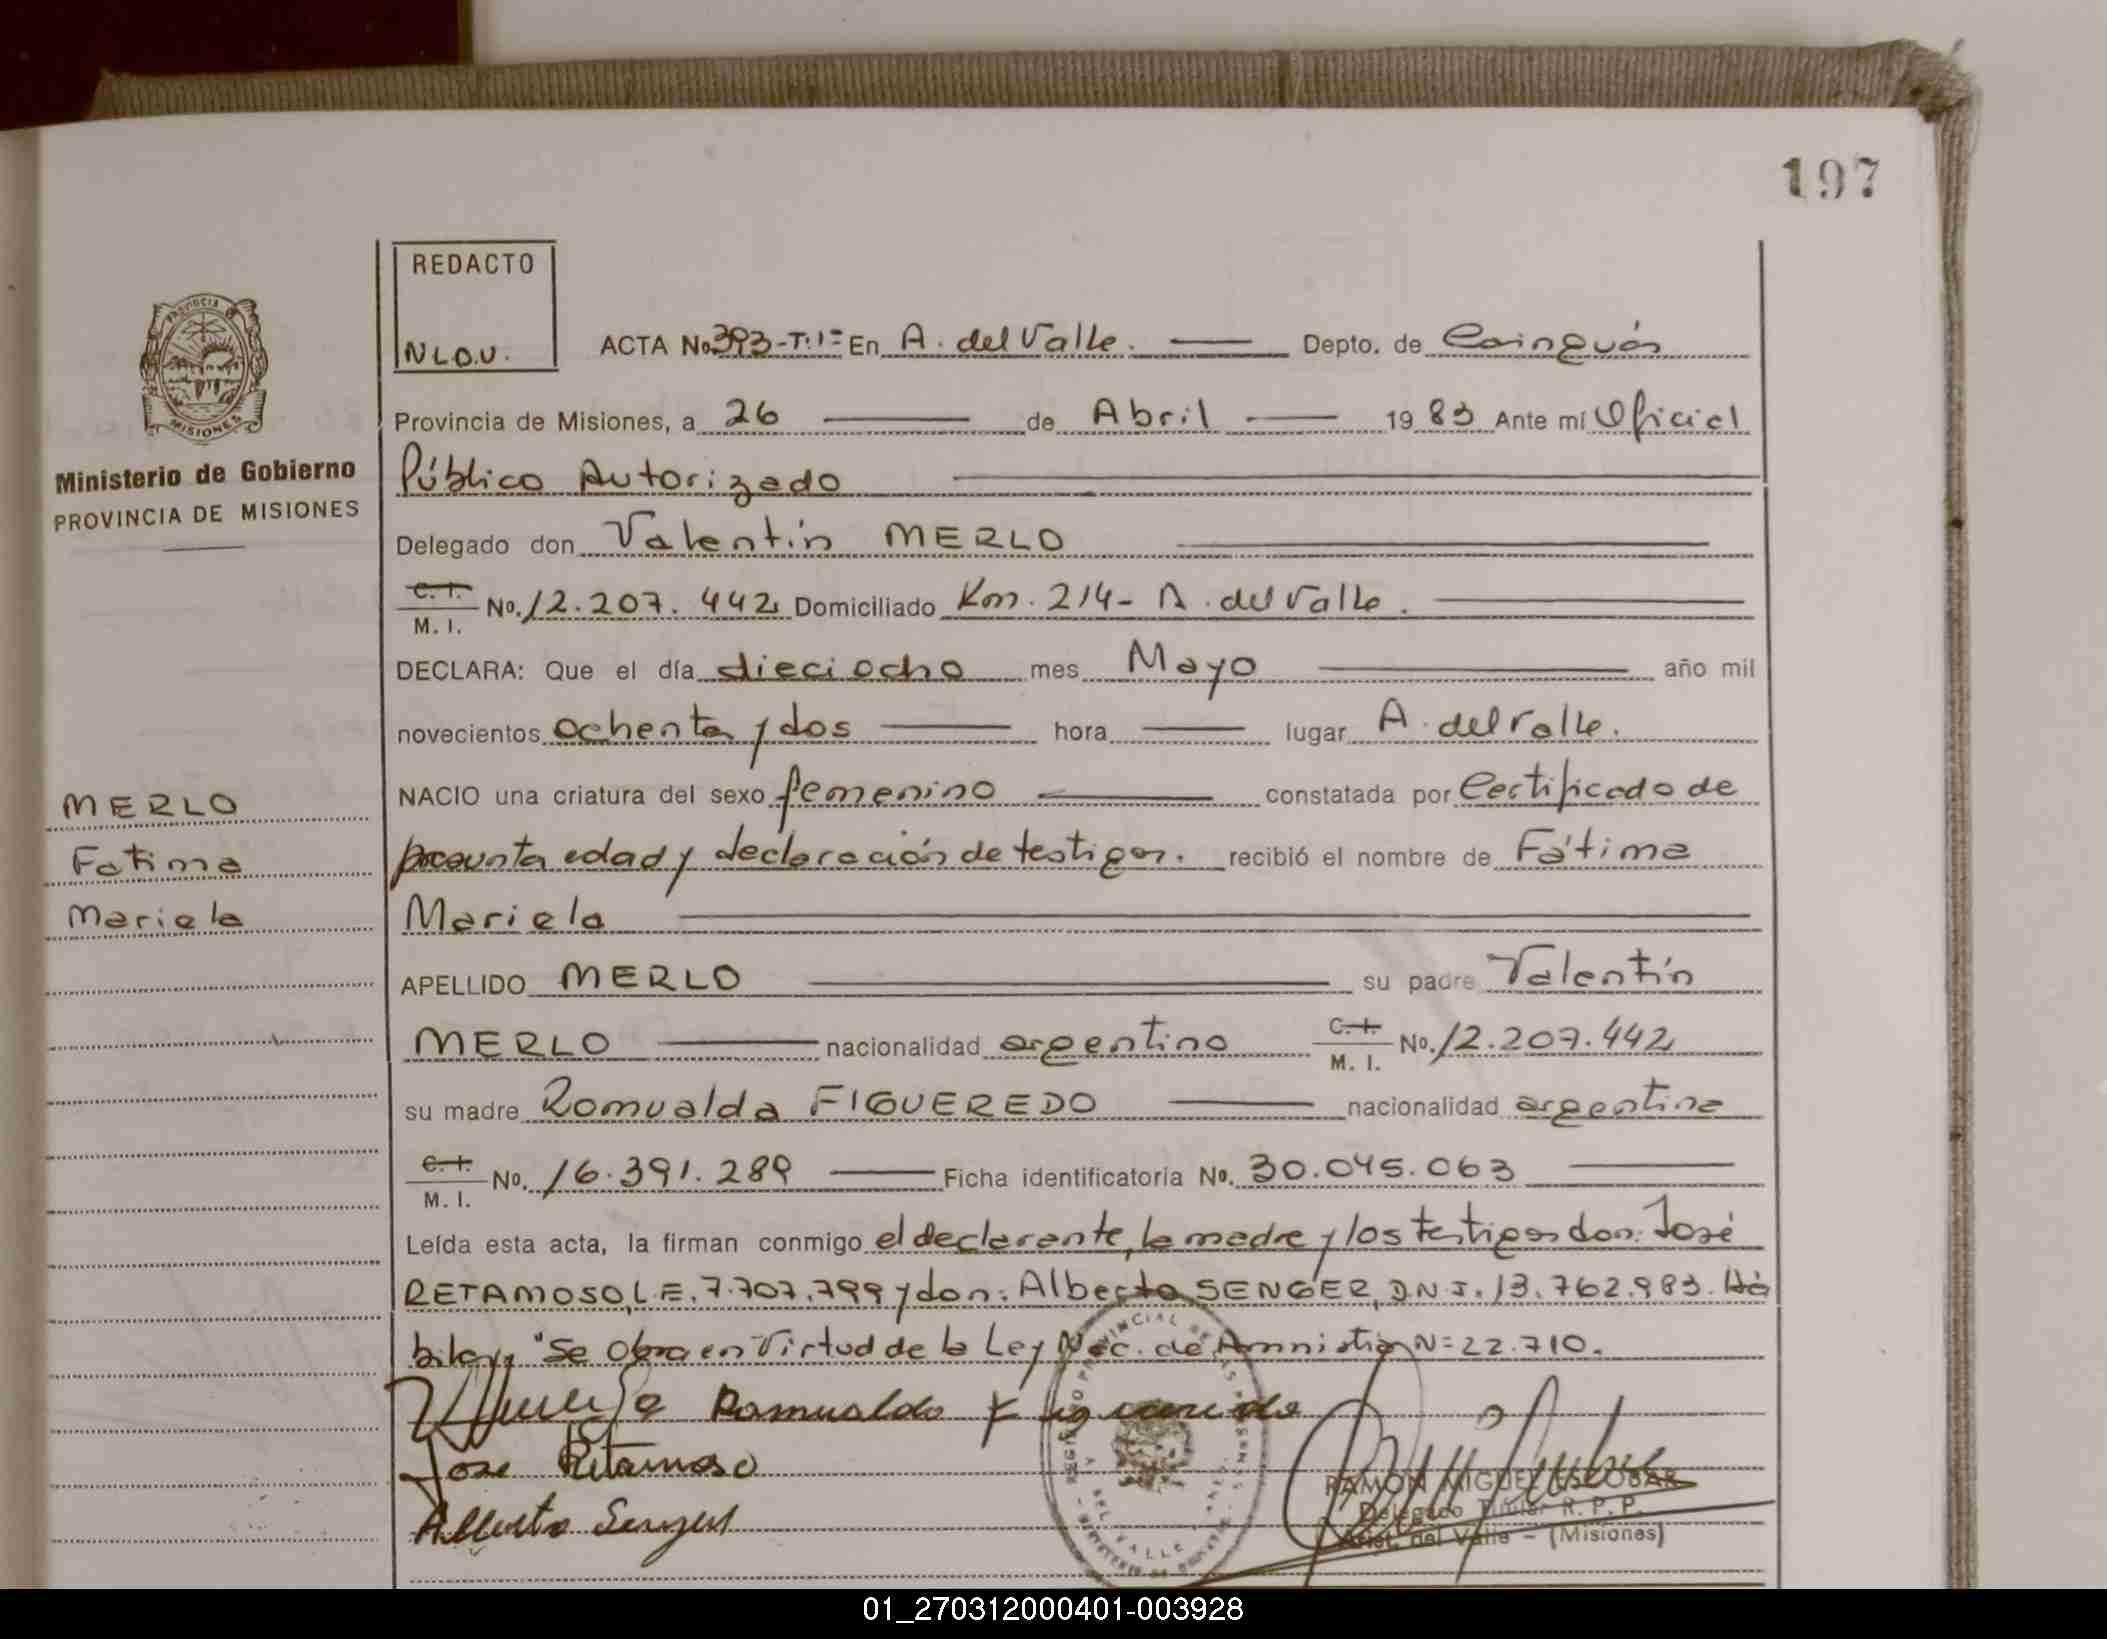 197
REDACTO
N L O.U.
PROVINCIA
MISIONES
Ministerio de Gobierno
PROVINCIA DE MISIONES
MERLO
Fatima
Mariela
ACTA No. 393-T:1= En A. del Valle. Depto. de Cainguás
Provincia de Misiones, a 26 de Abril 1983 Ante mí Oficial
Público Autorizado
Delegado don Valentín MERLO
C. I. M. I. No. 12.207.442 Domiciliado Km. 214- A. del Valle.
DECLARA: Que el día dieciocho mes Mayo año mil
novecientos ochenta y dos hora lugar A. del Valle.
NACIO una criatura del sexo femenino constatada por Certificado de
presunta edad y declaración de testigos. recibió el nombre de Fátima
Mariela
APELLIDO MERLO su padre Valentín
MERLO nacionalidad argentino C. I. M. I. No. 12.207.442
su madre Romualda FIGUEREDO nacionalidad argentina
C. I. M. I. No. 16.391.289 Ficha identificatoria No. 30.045.063
Leída esta acta, la firman conmigo el declarante, la madre y los testigos don: José
RETAMOSO, L.E. 7.707.799 y don: Alberto SENGER, D.N.I. 13.762.983. Há
biles, "Se Obra en Virtud de la Ley Nac. de Amnistía N= 22.710.
Romualda Figueredo
Jose Retamoso
Alberto Senger
RAMON MIGUEL ESCOBAR
Delegado Titular R. P. P.
Arist. del Valle - (Misiones)
01_270312000401-003928